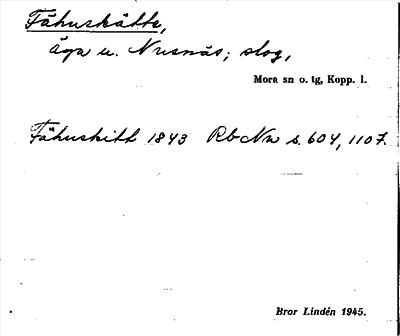 Fähuskätte,
äga u. Nusnäs; slog,
Mora sn o. tg, Kopp. l.
Fähuskitt 1843 Rb Nu s. 604, 1107.
Bror Lindén 1945.